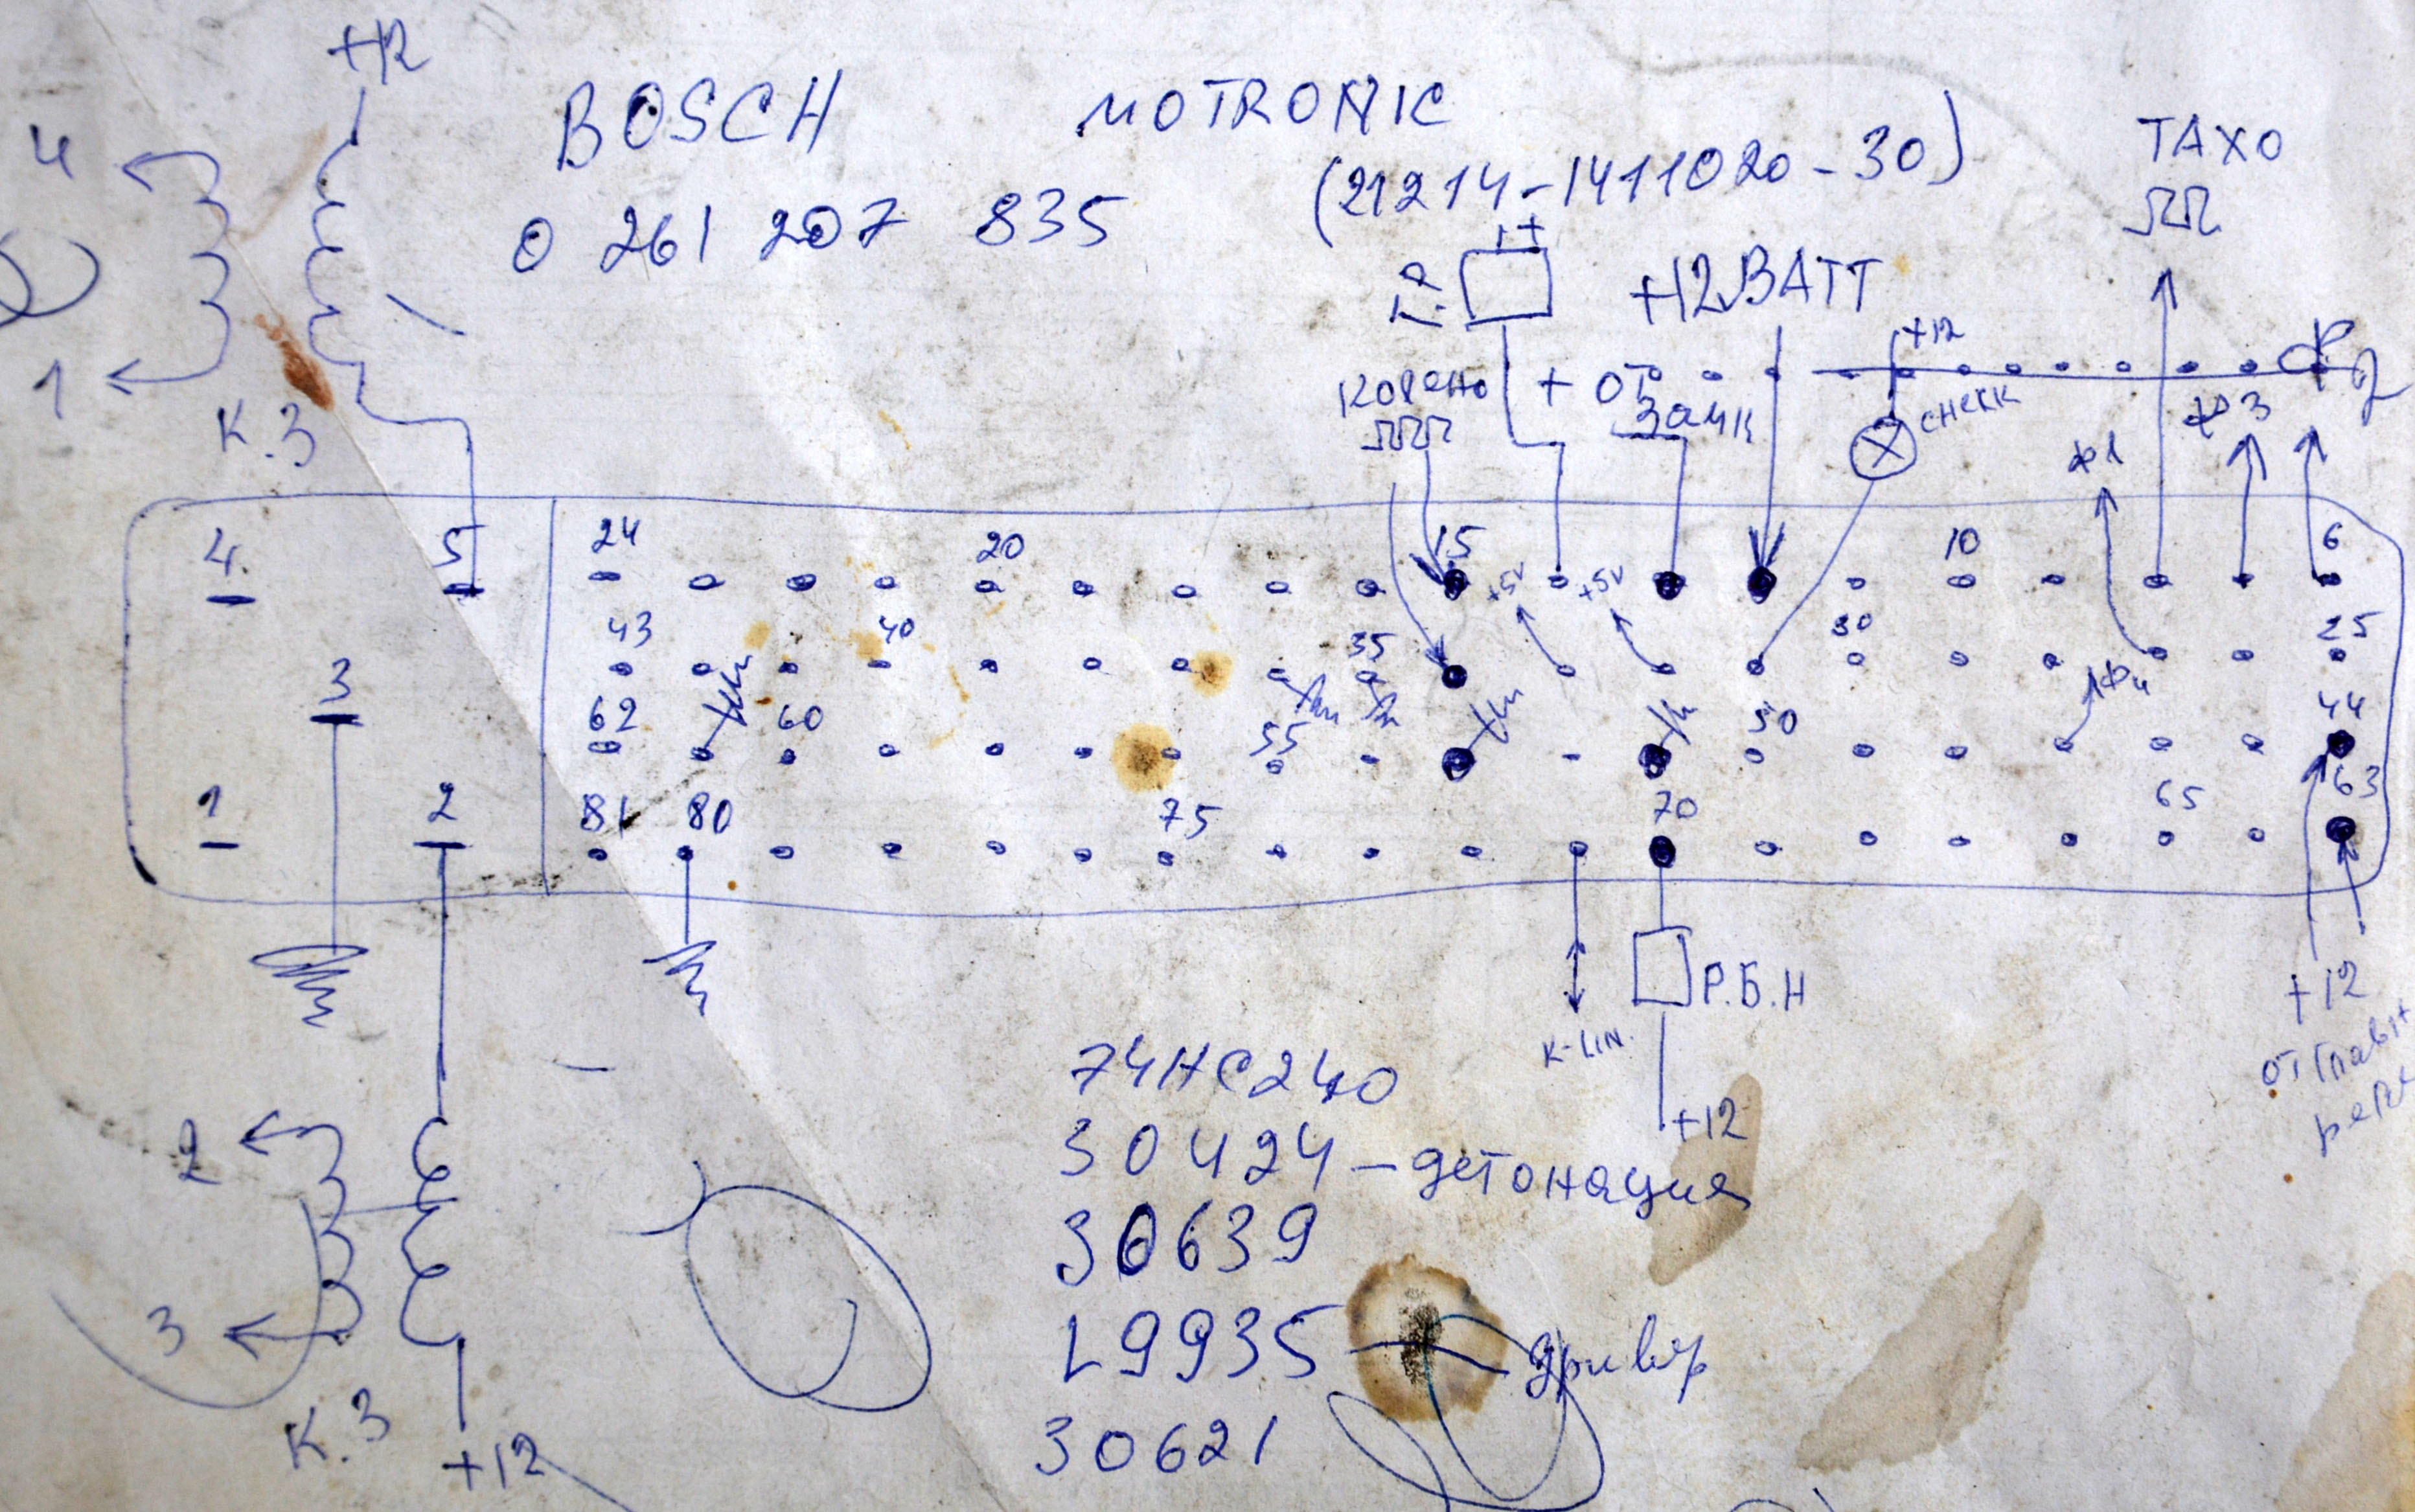 +12
BOSCH MOTRONIC
(21214-1411020-30)
0 261 207 835
ТАХО
4
1
К.З
Г.Р
+
+12 ВАТТ
+12
+ ОТ
Замк
снекк
ф1
ф3
ф2
4 5
24 20 15 10 6
+5V +5V
43 40 35 30 25
3
62 60 55 50 44
ф4
1 2
81 80 75 70 65 63
Р.Б.Н
K-LIN.
+12
+12
от главн
реле
74HC240
30424 – детонация
30639
L9935 – драйвер
30621
2
3
К.З
+12